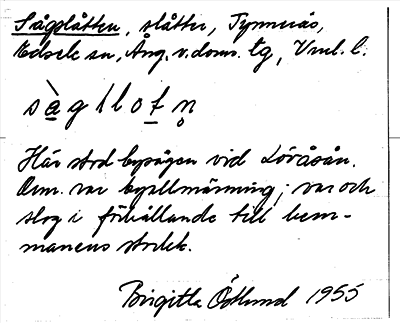 Sågslåtten, slåtter, Tynnerås,
Edsele sn, Ång. v. doms. tg, Vml. l.
sàgllotn̥
Här stod bysågen vid Löråsån.
Den var byallmänning; var och
slog i förhållande till hem-
manens storlek.
Birgitta Östlund 1955